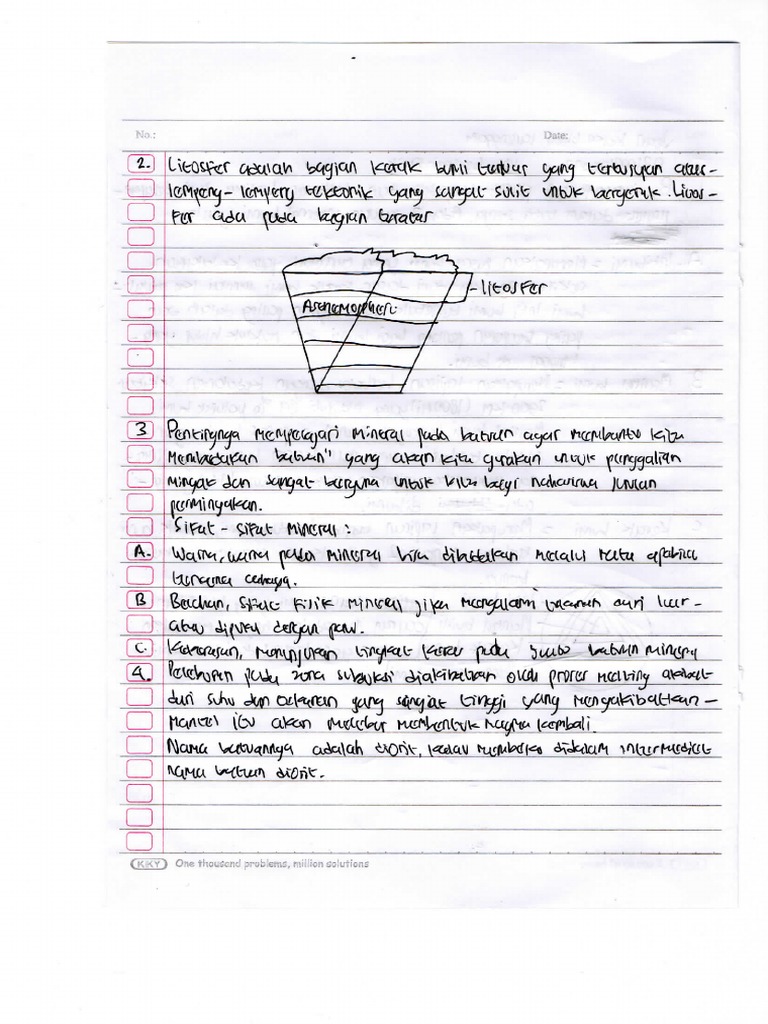 No.:
Date:
2. Litosfer adalah bagian kerak bumi terluar yang tersusun atas
lempeng-lempeng tektonik yang sangat sulit untuk bergerak. Litos-
fer ada pada bagian teratas
-litosfer
3 Pentingnya mempelajari mineral pada batuan agar membantu kita
membedakan batuan" yang akan kita gunakan untuk penggalian
minyak dan sangat berguna untuk kita bagi mahasiswa jurusan
perminyakan.
Sifat-sifat mineral:
A. Warna, warna pada mineral bisa dibedakan melalui mata apabila
terkena cahaya.
B Belahan, sifat fisik mineral jika mengalami tekanan dari luar-
atau dipukul dengan palu.
C. Kekerasan, menunjukan tingkat keras pada suatu batuan mineral
4. Peleburan pada zona subduksi diakibatkan oleh proses melting akibat
dari suhu dan tekanan yang sangat tinggi yang mengakibatkan-
mantel itu akan melebur membentuk magma kembali.
Nama batuannya adalah diorit, kalau membeku didalam intermediet
nama batuan diorit.
KKY One thousand problems, million solutions